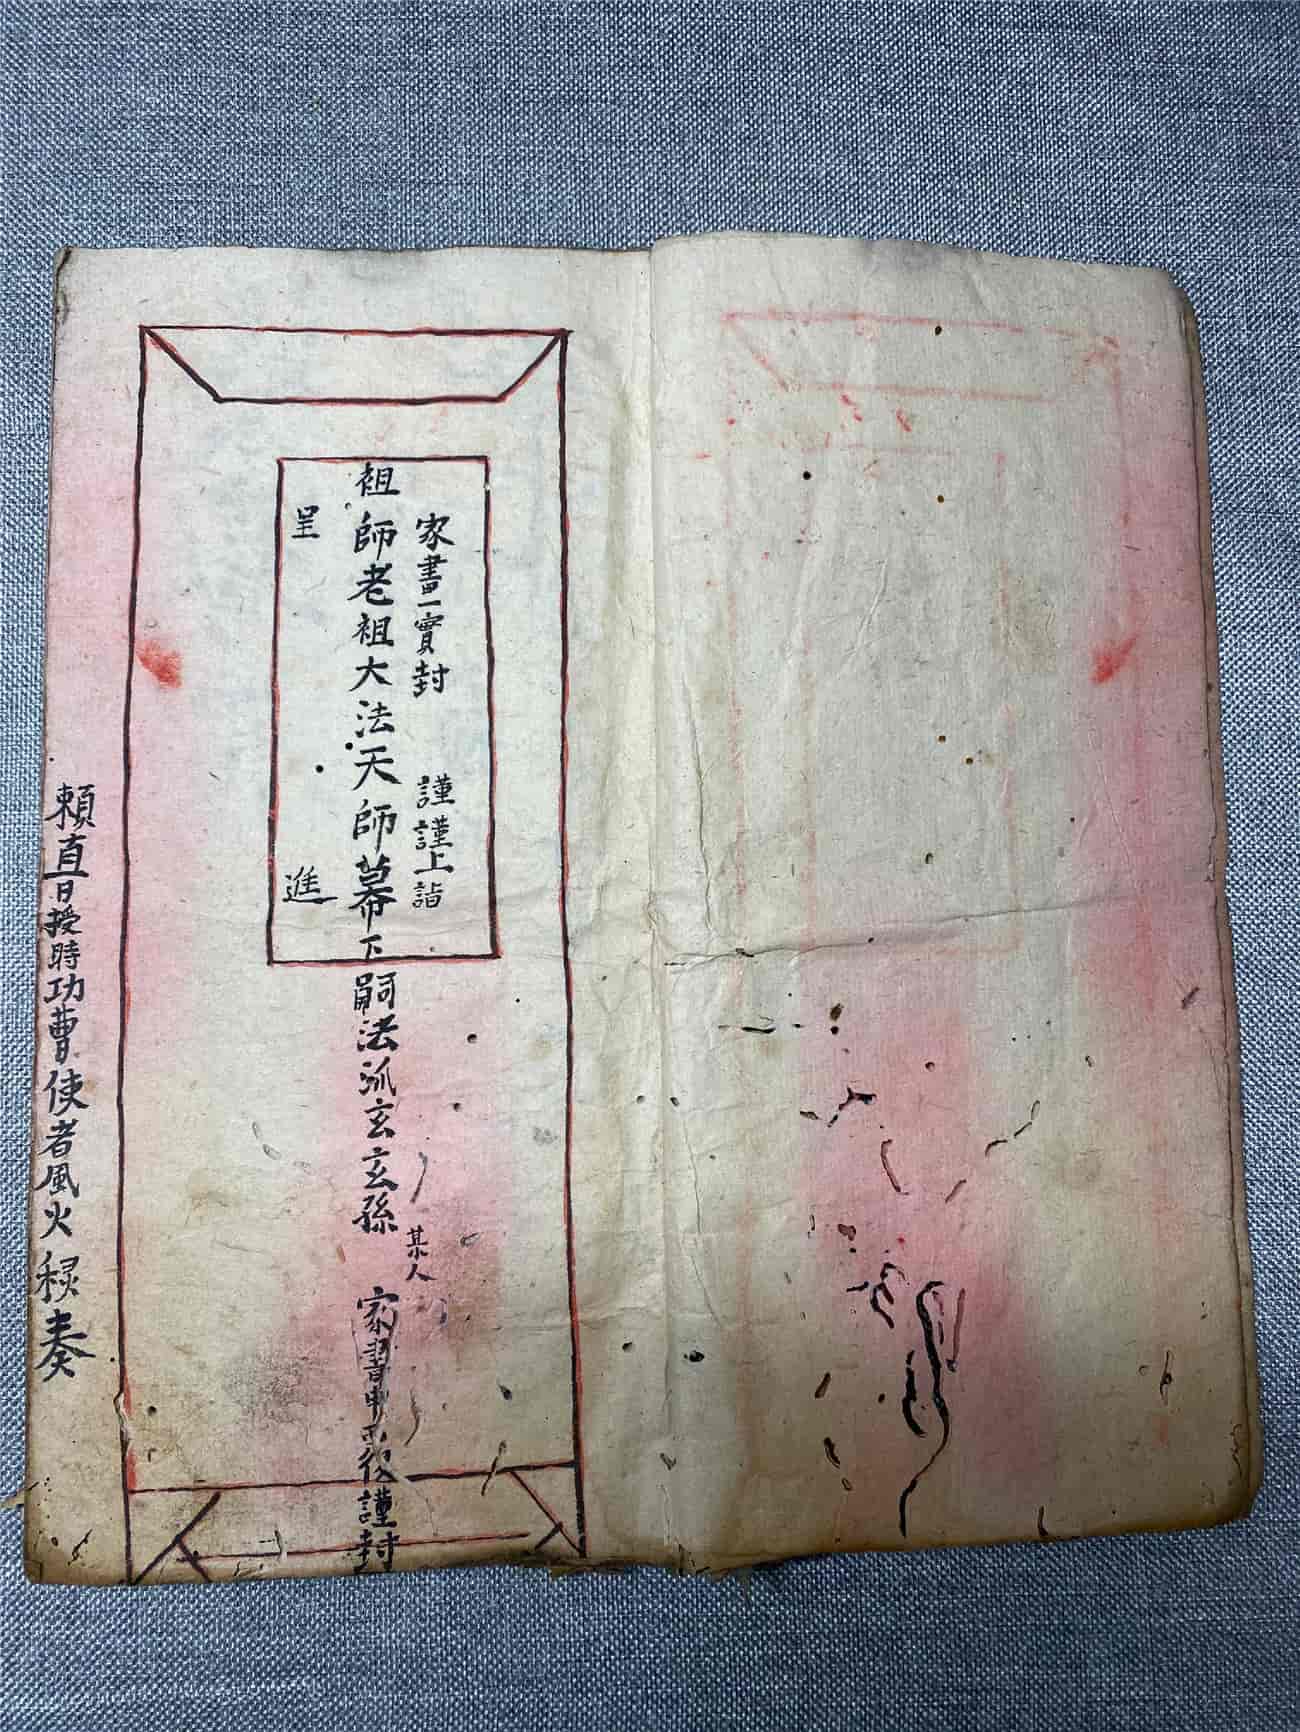 家書一實封 謹謹上詣
祖師老祖大法天師幕下嗣法派玄玄孫 某人 家書申 謹封
呈 進
賴直日授時功曹使者風火 奏